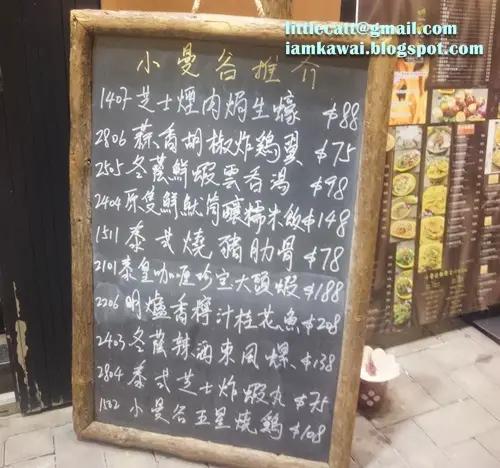 littlecatt@gmail.com
iamkawai.blogspot.com
小曼谷推介
1407 芝士煙肉焗生蠔 $88
2806 蒜香胡椒炸鷄翼 $75
2505 冬蔭鮮蝦雲吞湯 $98
2404 原隻鮮魷筒釀糯米飯 $148
1511 泰式燒豬肋骨 $78
2101 泰皇咖喱珍宝大頭蝦 $188
2206 明爐香檸汁桂花魚 $208
2403 冬蔭辣酒東風螺 $138
2804 泰式芝士炸蝦丸 $75
1502 小曼谷五星燒鷄 $108